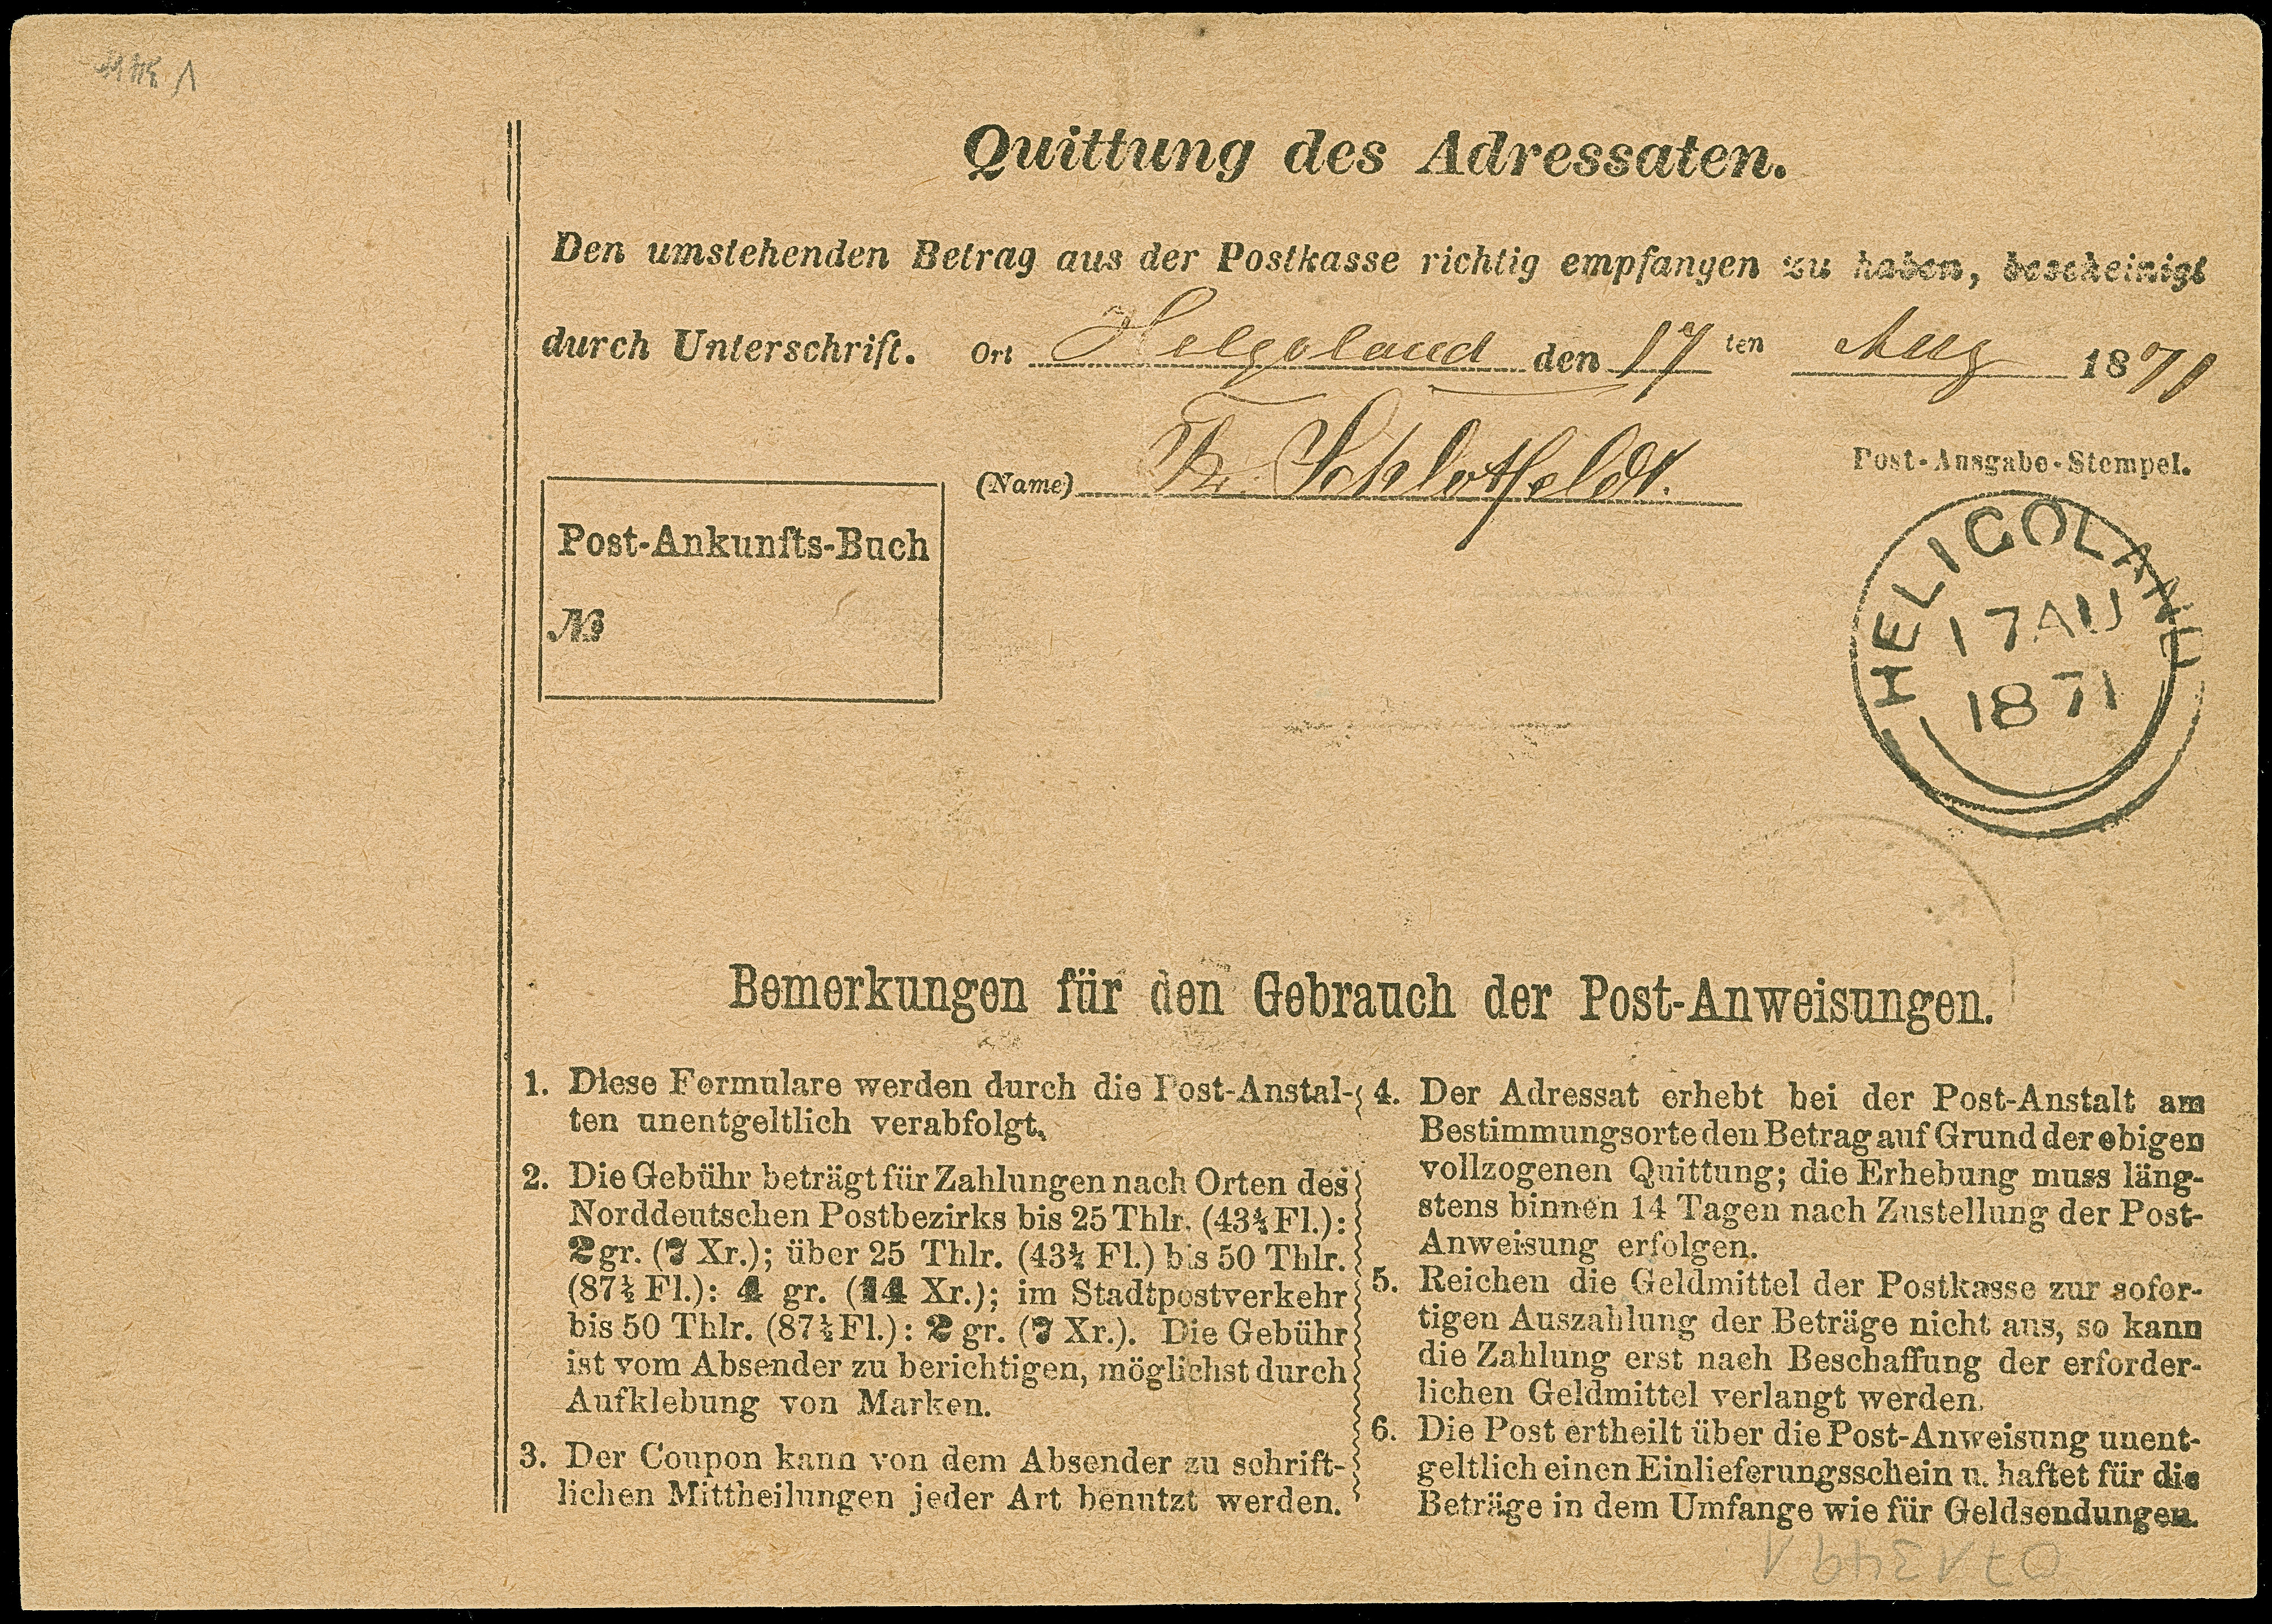 Quittung des Adressaten.
Den umstehenden Betrag aus der Postkasse richtig empfangen zu haben, bescheinigt
durch Unterschrift. Ort Helgoland den 17 ten Aug 1871
(Name) Schlotfeldt.
Post-Ausgabe-Stempel.
Post-Ankunfts-Buch
№
HELIGOLAND
17 AU
1871
Bemerkungen für den Gebrauch der Post-Anweisungen.
1. Diese Formulare werden durch die Post-Anstal-
ten unentgeltlich verabfolgt.
2. Die Gebühr beträgt für Zahlungen nach Orten des
Norddeutschen Postbezirks bis 25 Thlr. (43¾ Fl.):
2 gr. (7 Xr.); über 25 Thlr. (43¾ Fl.) bis 50 Thlr.
(87½ Fl.): 4 gr. (14 Xr.); im Stadtpostverkehr
bis 50 Thlr. (87½ Fl.): 2 gr. (7 Xr.). Die Gebühr
ist vom Absender zu berichtigen, möglichst durch
Aufklebung von Marken.
3. Der Coupon kann von dem Absender zu schrift-
lichen Mittheilungen jeder Art benutzt werden.
4. Der Adressat erhebt bei der Post-Anstalt am
Bestimmungsorte den Betrag auf Grund der obigen
vollzogenen Quittung; die Erhebung muss läng-
stens binnen 14 Tagen nach Zustellung der Post-
Anweisung erfolgen.
5. Reichen die Geldmittel der Postkasse zur sofor-
tigen Auszahlung der Beträge nicht aus, so kann
die Zahlung erst nach Beschaffung der erforder-
lichen Geldmittel verlangt werden.
6. Die Post ertheilt über die Post-Anweisung unent-
geltlich einen Einlieferungsschein u. haftet für die
Beträge in dem Umfange wie für Geldsendungen.